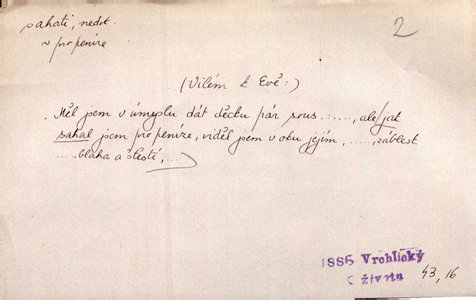 sahati, nedok.
~ pro peníze
2
(Vilém k Evě:)
Měl jsem v úmyslu dát děcku pár sous ......, ale/jak
sahal jsem pro peníze, viděl jsem v oku jejím, ......, záblesk
.... blaha a štěstí, ...
1886 Vrchlický
živtu 43, 16